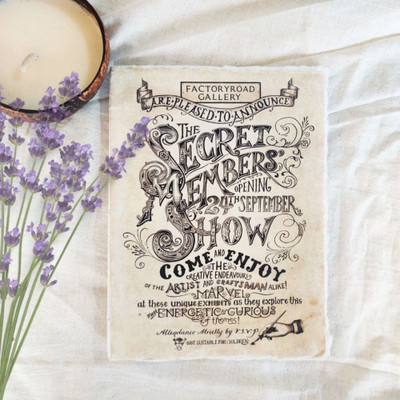 FACTORYROAD
GALLERY
ARE·PLEASED·TO·ANNOUNCE
THE
SECRET
MEMBERS'
OPENING
24TH SEPTEMBER
SHOW
COME AND ENJOY
THE
CREATIVE ENDEAVOURS
OF THE ARTIST AND CRAFTSMAN ALIKE!
MARVEL
at these unique EXHIBITS as they explore this
ENERGETIC & CURIOUS
of themes!
Attendance Strictly by R.S.V.P.
NOT SUITABLE FOR CHILDREN